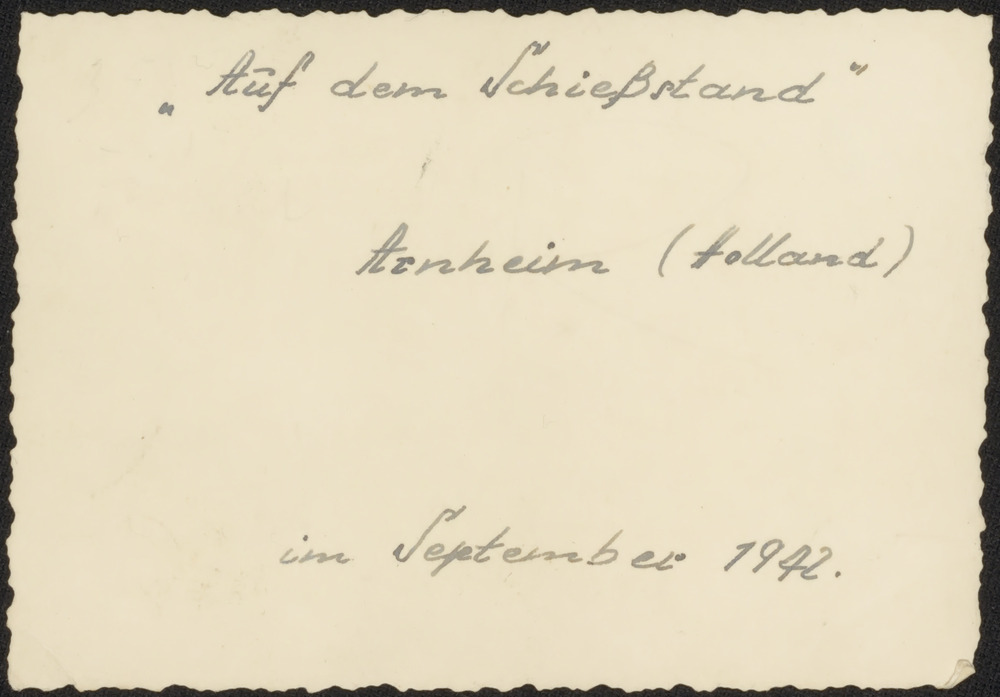 „Auf dem Schießstand“
Arnheim (Holland)
im September 1942.